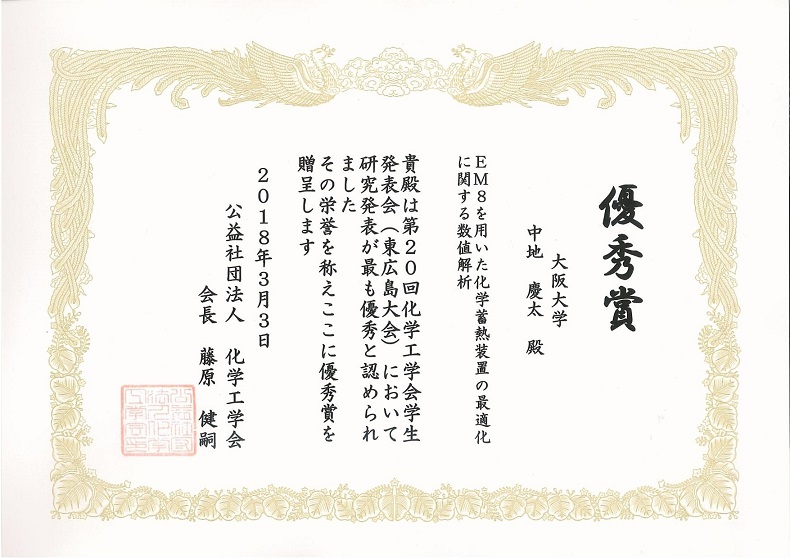 優秀賞
大阪大学
中地 慶太 殿
EM8を用いた化学蓄熱装置の最適化
に関する数値解析
貴殿は第20回化学工学会学生
発表会（東広島大会）において
研究発表が最も優秀と認められ
ました
その栄誉を称えここに優秀賞を
贈呈します
2018年3月3日
公益社団法人 化学工学会
会長 藤原 健嗣